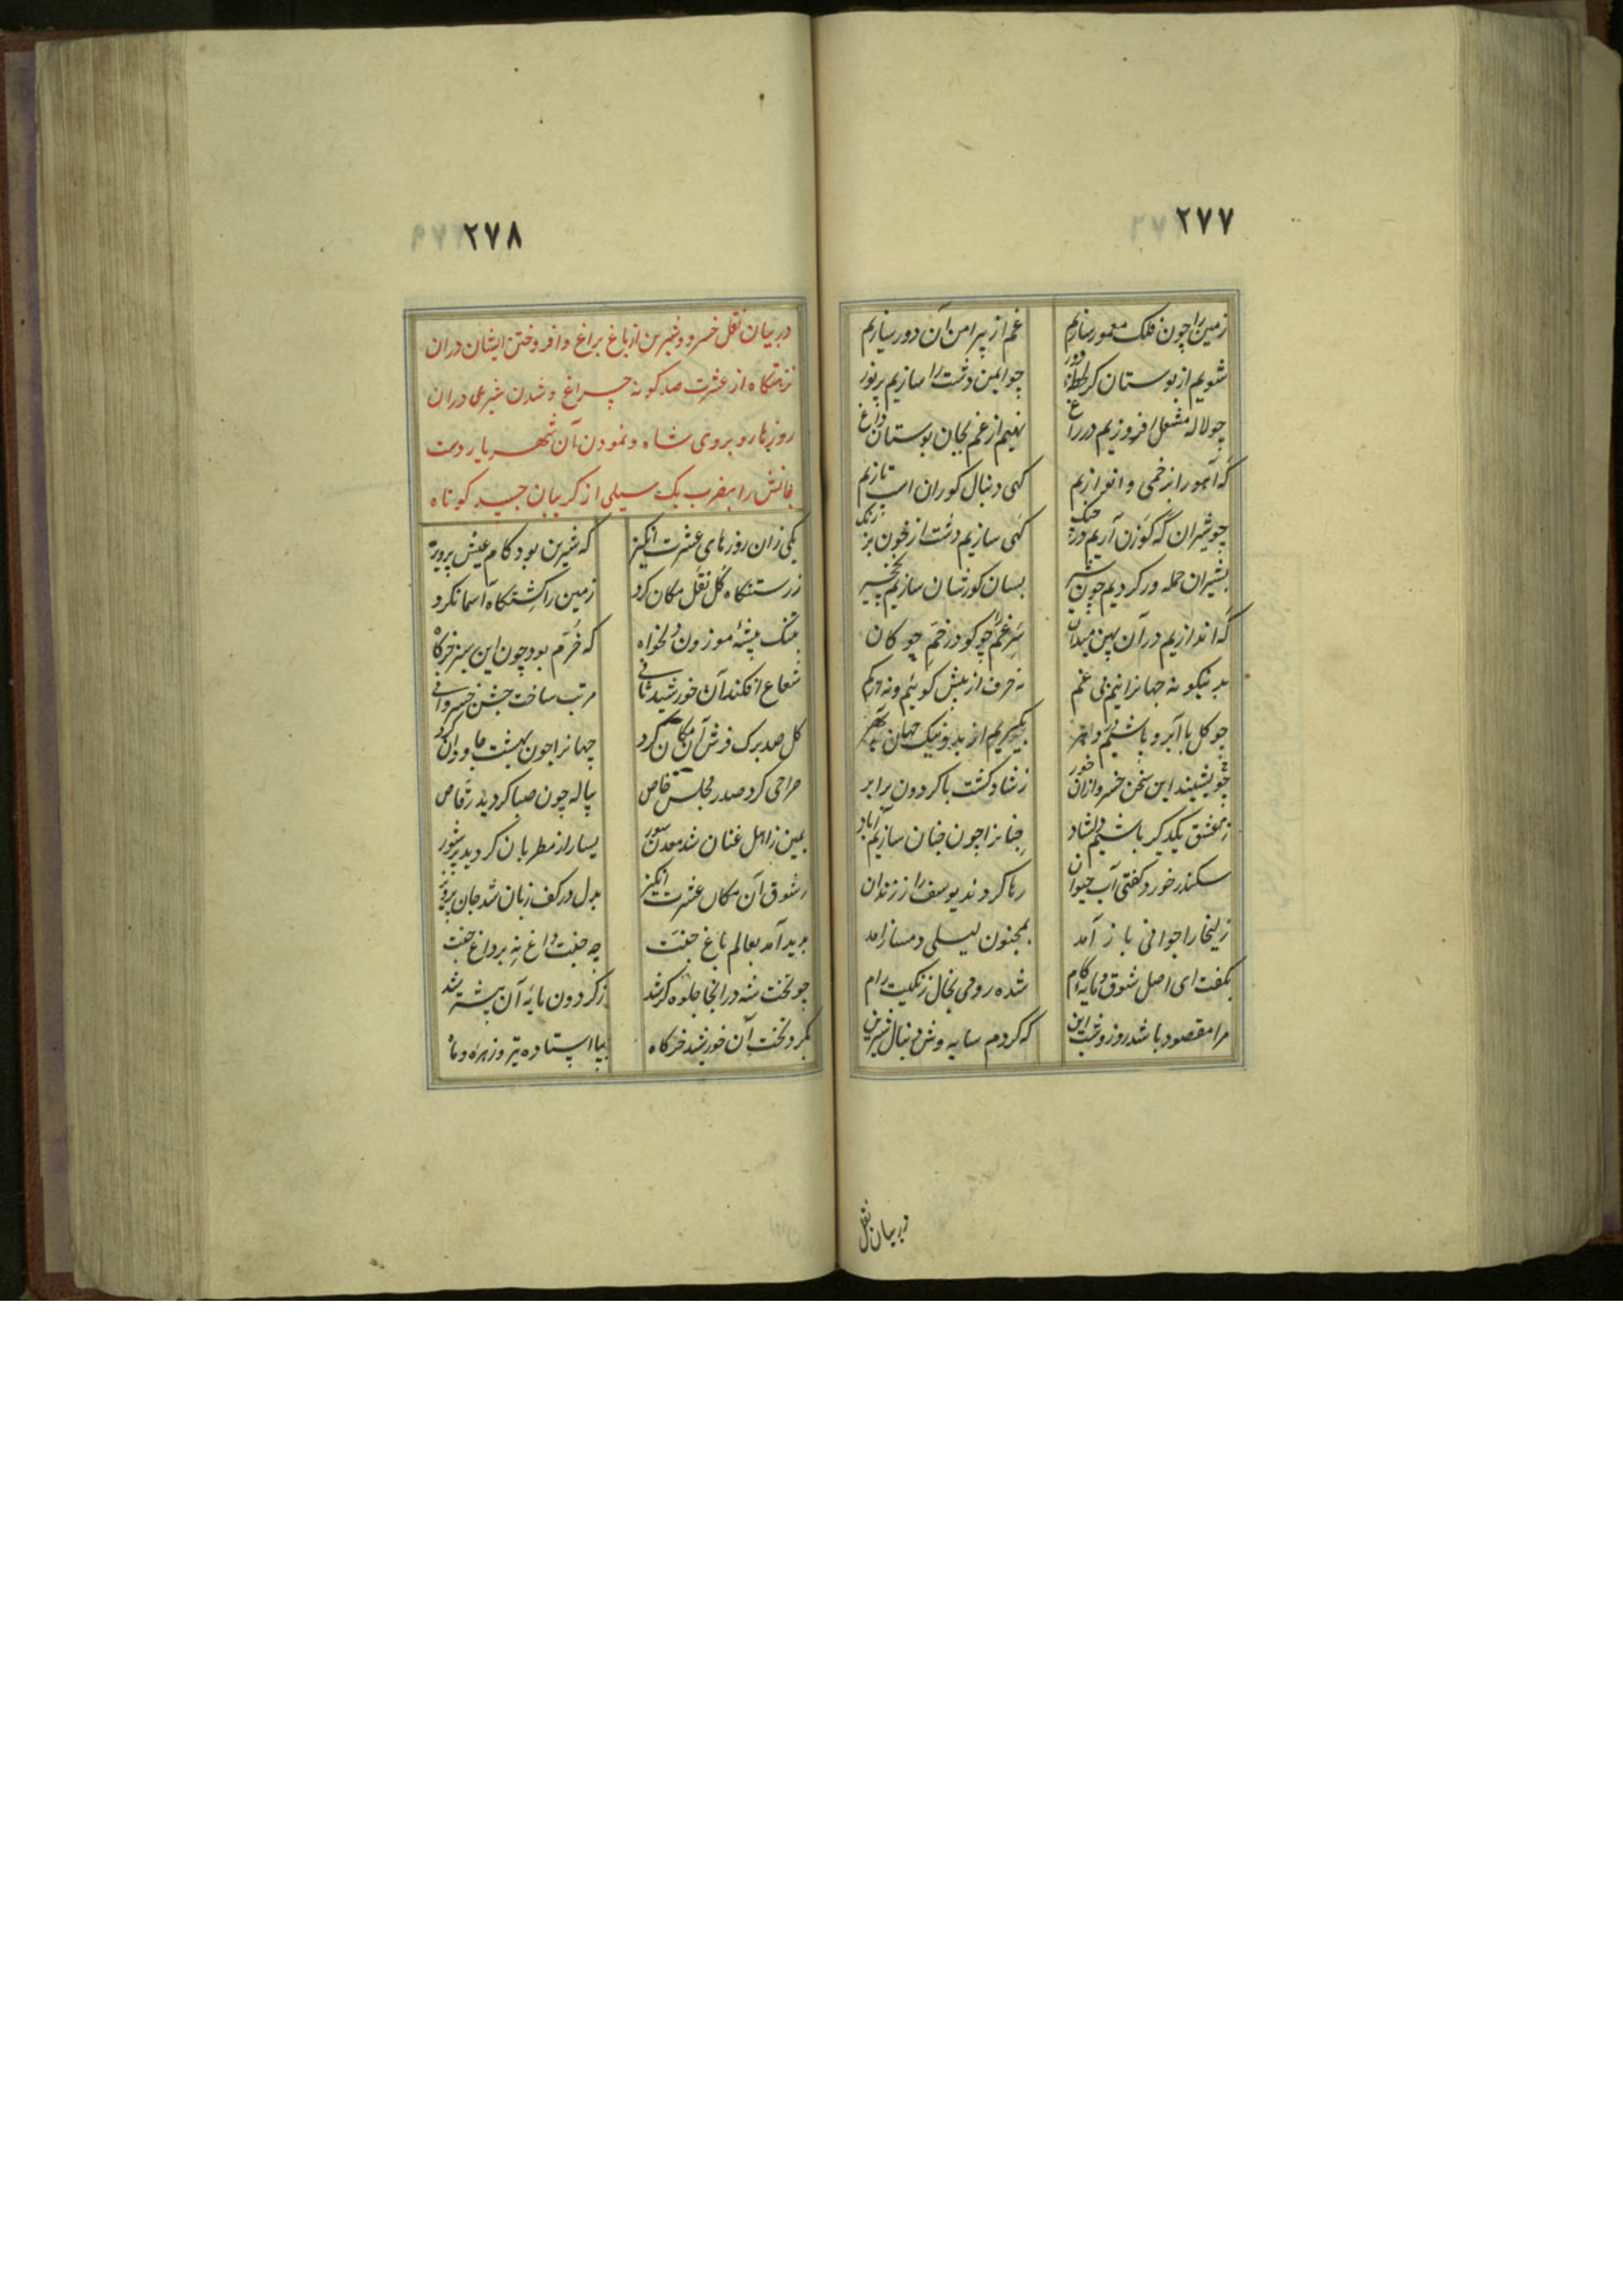 ۲۷۷
زمین را چون فلک معمور سازیم غم از پیرامن آن دور سازیم
شویم از بوستان گر لحظهٔ دور چو ایمن دشت را سازیم پر نور
چو لاله مشعل افروزیم در راغ نهیم از غم بجان بوستان داغ
که آهو را بزخمی وانوازیم کهی دنبال کوران اسب تازیم
چو شیران که کوزن آریم در چنک کهی سازیم دشت از خون بز رنک
بشیران حمله ور کردیم چون شیر بسان کورشان سازیم نخجیر
که اندازیم در آن پهن میدان سر غم چو کو در زخم چوکان
بدینکونه جهانرانیم بی غم نه حرف از بیش کوییم و نه از کم
چو کل با آبرو باشیم
چو بشنید این سخن خسرو از ان خور ز شادی کشت با کردون برابر
ز عشق یکدیکر باشیم دلشاد جهانرا چون جنان سازیم آباد
سکندر خورد کفتی آب حیوان رها کردند یوسف را ز زندان
زلیخا را جوانی باز آمد بمجنون لیلی دمساز امد
بکفت ای اصل شوق و مایهٔ کام شده رومی بخال زنکیت رام
مرا مقصود باشد روز و شب این که کردم سایه وش دنبال شیرین
در بیان نقل
۲۷۸
در بیان نقل خسرو و شیرین از باغ براغ و افروختن ایشان در ان
نزهتکاه از عشرت صد کونه چراغ و شدن شیری در ان
روزها رو بروی شاه و نمودن آن شهریار دست
جانش را بضرب یک سیلی از کریبان جسد کوتاه
یکی زان روزهای عشرت انکیز که شیرین بود کام عیش پرویز
ز رستنکاه کل نقل مکان کرد زمین را کشتکاه آسمانکرد
بتنک بیشهٔ موزون دلخواه که خرم بود چون این سبز خرکاه
شعاع افکند آن خورشید ثانی مرتب ساخت جشن خسروانی
کل صد برک فرش آن مکان کرد جهانرا چون بهشت جاودان کرد
صراحی کرد صدر مجلس خاص پیاله چون صبا کردید رقاص
یمین ز اهل غنان شد معدن سور یسار از مطربان کردید پر شور
ز شوق آن مکان عشرت انکیز بدل در کف زبان شد جان پرویز
پدید آمد بعالم باغ جنت چه جنت داغ نه بر داغ جنت
چو تخت شه در انجا جلوه کر شد ز کردون پایهٔ آن بیشتر شد
بکرد تخت آن خورشید خرکاه بپا استاده تیر و زهره و ماه